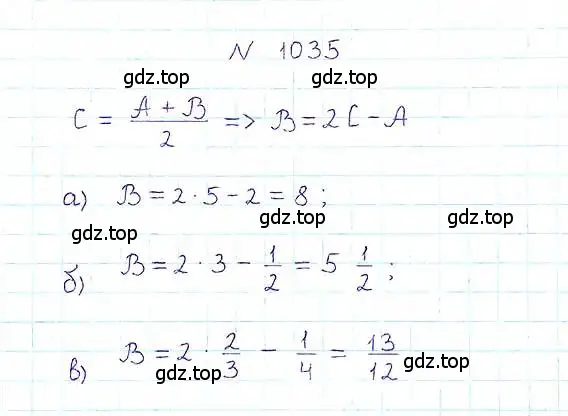 N 1035
gdz.top gdz.top
C = A + B / 2 => B = 2C - A
а) B = 2 · 5 - 2 = 8 ;
gdz.top gdz.top gdz.top
б) B = 2 · 3 - 1/2 = 5 1/2 ;
в) B = 2 · 2/3 - 1/4 = 13/12
gdz.top gdz.top